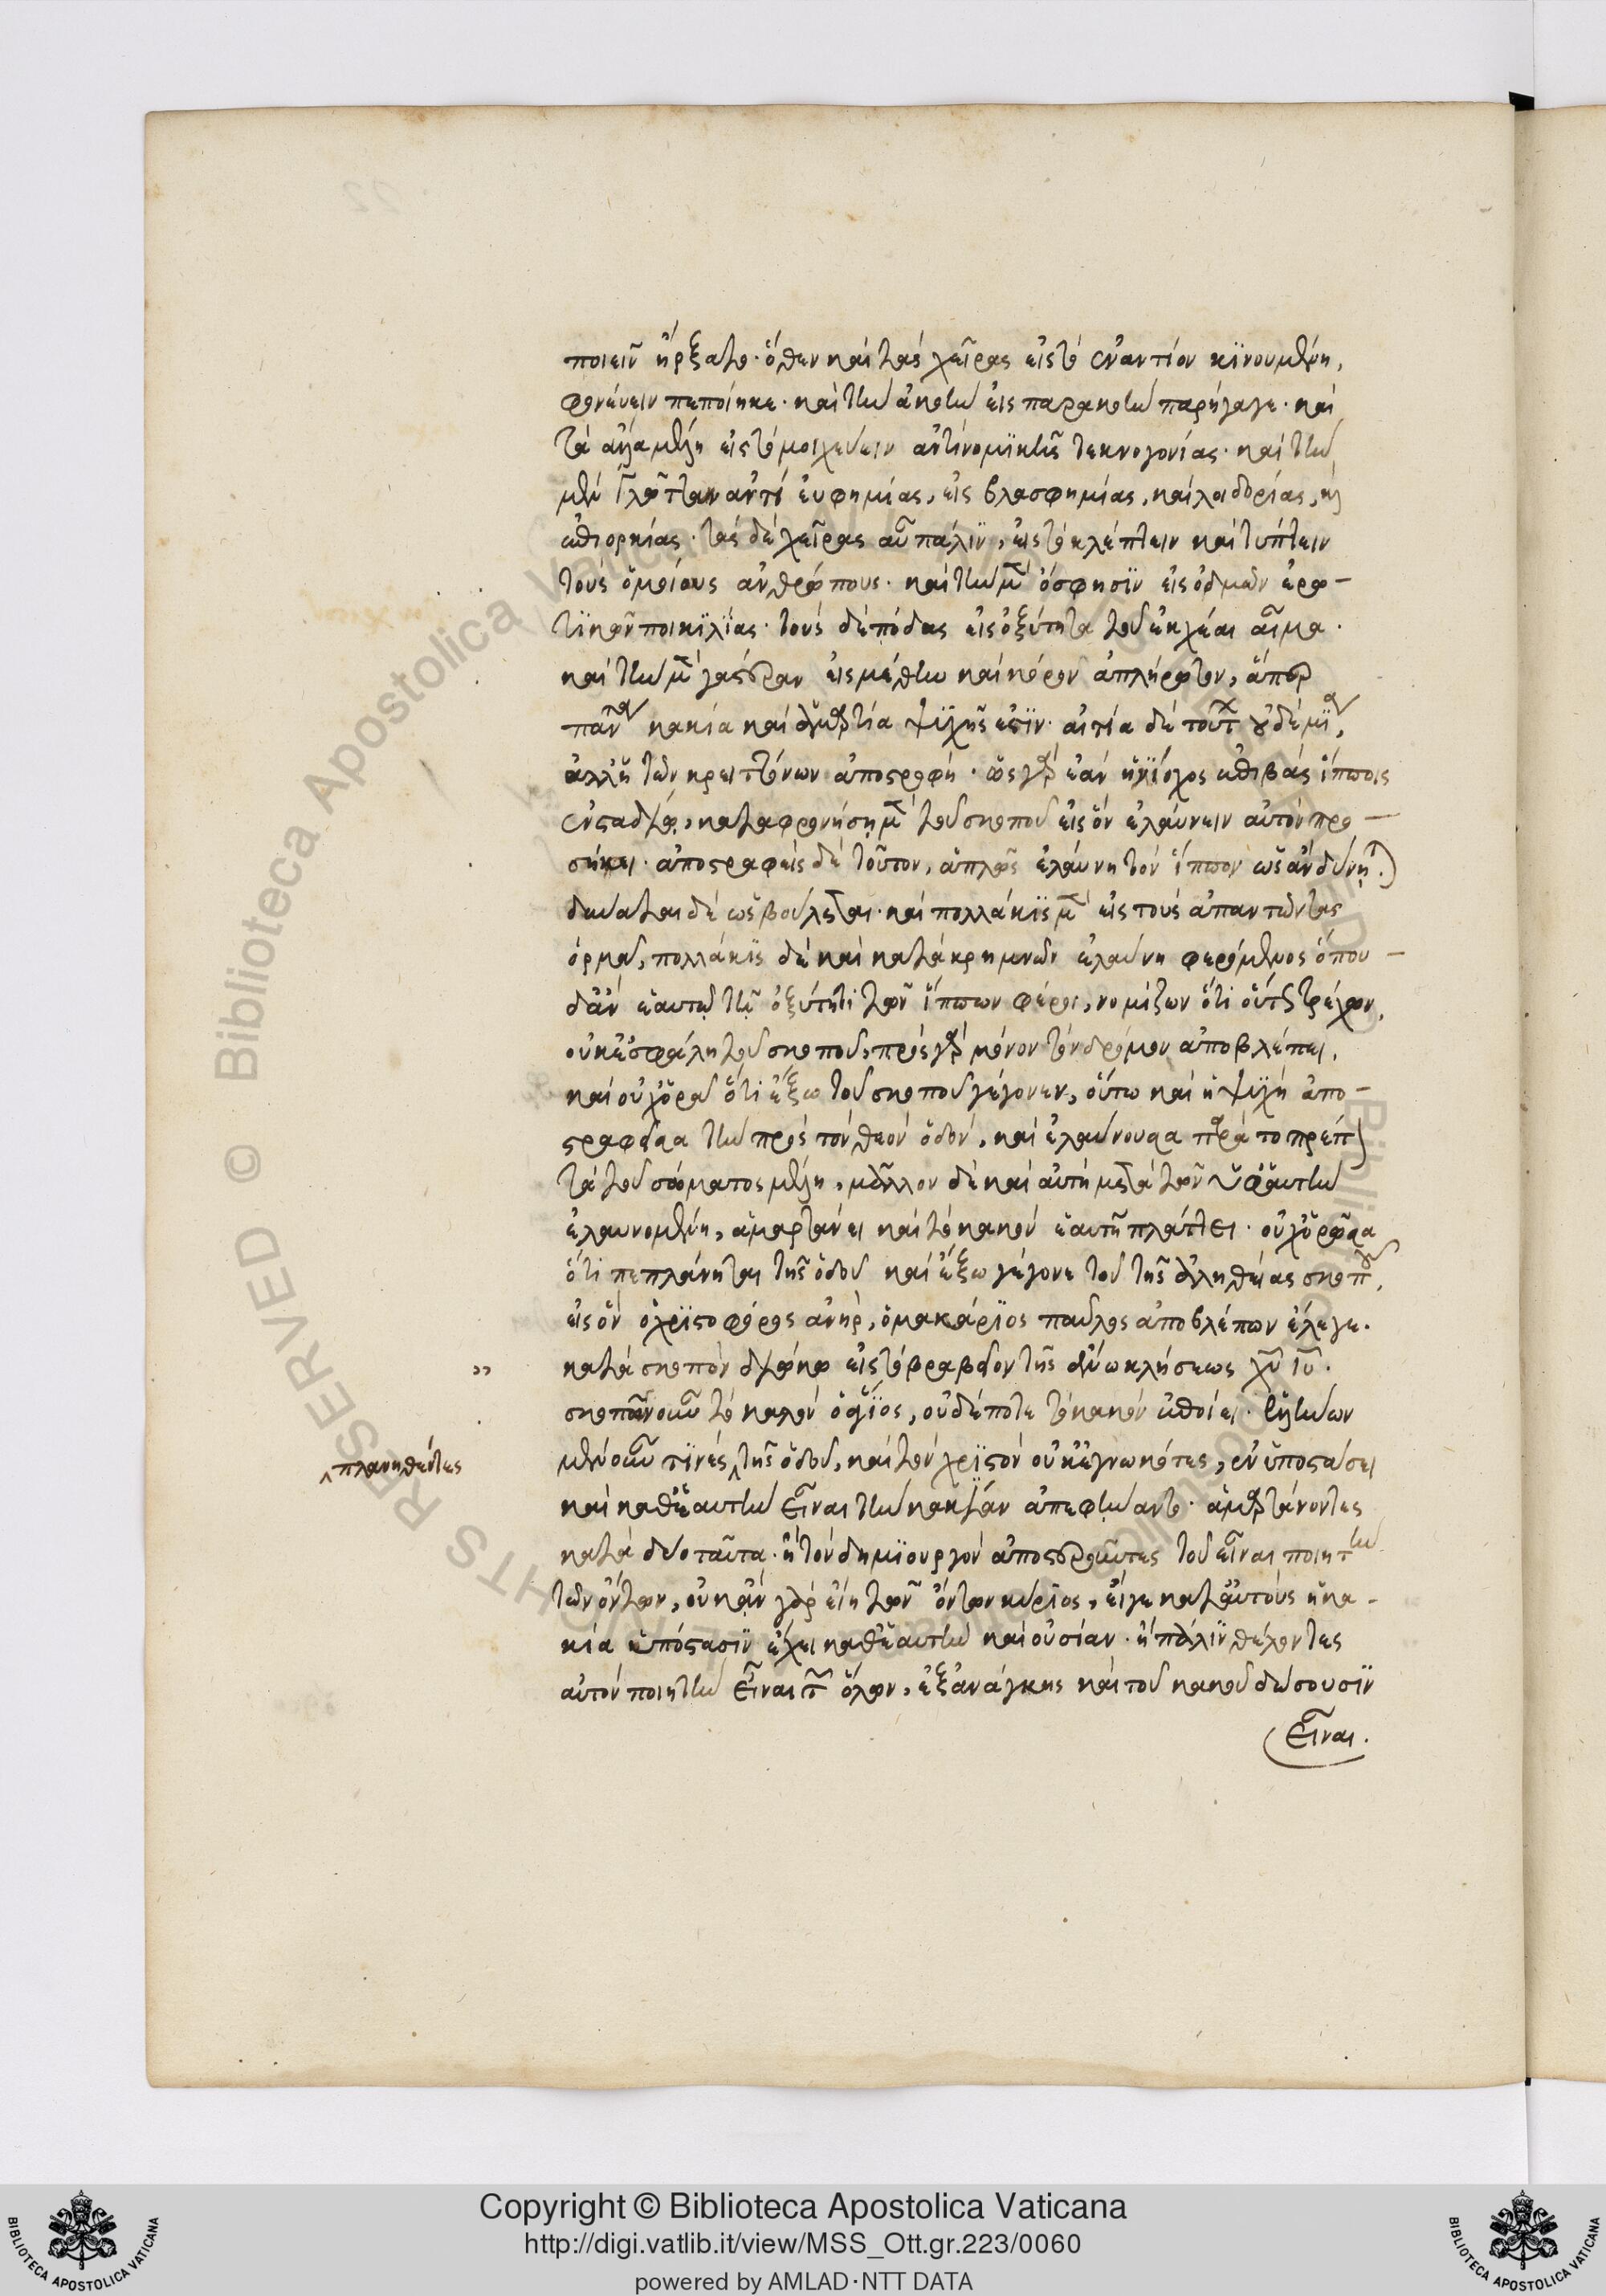 ποιεῖν ἤρξατο· ὅθεν καὶ τὰς χεῖρας εἰς τὸ ἐναντίον κϊνουμένη,
φονεύειν πεποίηκε· καὶ τὴν ἀκοὴν εἰς παρακοὴν παρήγαγε· καὶ
τὰ ἄλλα μέλη εἰς τὸ μοιχεύειν ἀντὶ νομϊκῆς τεκνογονίας· καὶ τὴν
μὲν γλῶτταν ἀντὶ εὐφημίας, εἰς βλασφημίας, καὶ λοιδορίας, καὶ
ἐπιορκίας· τὰς δὲ χεῖρας αὖ πάλϊν, εἰς τὸ κλέπτειν καὶ τύπτειν
τοὺς ὁμοίους ἀνθρώπους· καὶ τὴν μὲν ὄσφησϊν εἰς ὀδμῶν ἐρω-
τικῶν ποικϊλΐας· τοὺς δὲ πόδας εἰς ὀξύτητα τοῦ ἐκχέαι αἷμα·
καὶ τὴν μὲν γαστέραν εἰς μέθην καὶ κόρον ἀπλήρωτον, ἅπερ
πάντα κακία καὶ ἁμαρτία ψϋχῆς ἐστϊν· αἰτία δὲ τούτων οὐδεμΐα,
ἀλλ' ἡ τῶν κρειττόνων ἀποστροφή· ὡς γὰρ ἐὰν ἡνΐοχος ἐπιβὰς ἵπποις
ἐν σταδίῳ, καταφρονήσῃ μὲν τοῦ σκοποῦ εἰς ὃν ἐλαύνειν αὐτὸν προ-
σήκει· ἀποστραφεὶς δὲ τοῦτον, ἁπλῶς ἐλαύνη τὸν ἵππον ὡς ἂν δύνηται·
δύναται δὲ ὡς βούλεται· καὶ πολλάκϊς μὲν εἰς τοὺς ἀπαντῶντας
ὁρμᾷ, πολλάκϊς δὲ καὶ κατὰ κρημνῶν ἐλαύνη φερόμενος ὅπου-
δἂν ἑαυτῷ τῇ ὀξύτητι τῶν ἵππων φέροι, νομίζων ὅτι οὕτως τρέχων,
οὐκ ἐσφάλη τοῦ σκοποῦ, πρὸς γὰρ μόνον τὸν δρόμον ἀποβλέπει,
καὶ οὐχ ὁρᾷ ὅτι ἔξω τοῦ σκοποῦ γέγονεν, οὕτω καὶ ἡ ψϋχὴ ἀπο-
στραφεῖσα τὴν πρὸς τὸν θεὸν ὁδὸν, καὶ ἐλαύνουσα παρὰ τὸ πρέπον
τὰ τοῦ σώματος μέλη, μᾶλλον δὲ καὶ αὐτὴ μετὰ τῶν ὑφ' ἑαυτὴν
ἐλαυνομένη, ἁμαρτάνει καὶ τὸ κακὸν ἑαυτῇ πλάττει· οὐχ ὁρῶσα
ὅτι πεπλάνηται τῆς ὁδοῦ καὶ ἔξω γέγονε τοῦ τῆς ἀληθείας σκοποῦ,
εἰς ὃν ὁ χρϊστοφόρος ἀνὴρ, ὁ μακάρϊος παῦλος ἀποβλέπων ἔλεγε·
κατὰ σκοπὸν διώκω εἰς τὸ βραβεῖον τῆς ἄνω κλήσεως χῦ ἰῦ·
σκοπῶν οὖν τὸ καλὸν ὁ ἅγϊος, οὐδέποτε τὸ κακὸν ἐποίει· ἑλλήνων
μὲν οὖν τϊνὲς ‸τῆς ὁδοῦ, καὶ τὸν χρϊστὸν οὐκ ἐγνωκότες, ἐν ὑποστάσει
‸πλανηθέντες
καὶ καθ' ἑαυτὴν εἶναι τὴν κακΐαν ἀπεφήναντο· ἁμαρτάνοντες
κατὰ δύο ταῦτα· ἢ τὸν δημϊουργὸν ἀποστεροῦντες τοῦ εἶναι ποιητὴν
τῶν ὄντων, οὐκ ἂν γὰρ εἴη τῶν ὄντων κύρϊος, εἴγε κατ' αὐτοὺς ἡ κα-
κία ὑπόστασϊν ἔχει καθ' ἑαυτὴν καὶ οὐσίαν· ἢ πάλϊν θέλοντες
αὐτὸν ποιητὴν εἶναι τῶν ὅλων, ἐξ ἀνάγκης καὶ τοῦ κακοῦ δώσουσϊν
εἶναι.
Copyright © Biblioteca Apostolica Vaticana
http://digi.vatlib.it/view/MSS_Ott.gr.223/0060
powered by AMLAD·NTT DATA